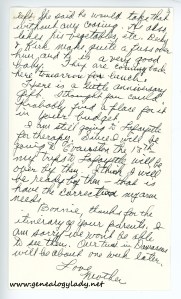 left. She said he would take that
without any coaxing. He also
takes his vegetables, etc. Baby
Kirk makes quite a fuss over
her, and is a very good
baby. They are coming back
here tomorrow for lunch!
Here is a little anniversary
gift straight coming
Probably find a place for it
in your budget.
I am still going to Lafayette
for these Since I will be
going to Evanston the 18th
my trips to Lafayette will be
over by then. I think I will
be ready by then - that is
have the correct
needs.
Bonnie, thanks for the
itinerary of your parents. I
am sorry we won't be able
to see them. Our time in Damascus
will be about one week later.
Love
Mother
www.genealogylady.net